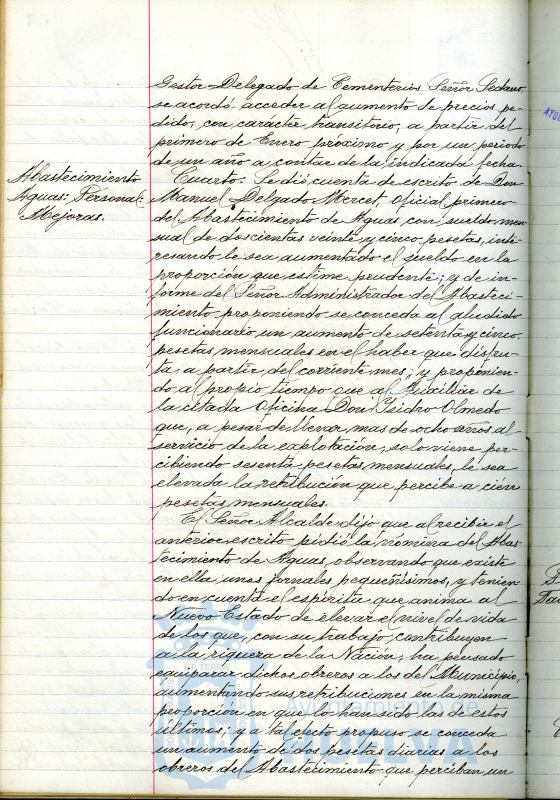 Gestor-Delegado de Cementerios Señor Sedano,
se acordó, acceder al aumento de precios pe-
dido, con carácter transitorio, a partir del
primero de Enero próximo y por un período
de un año a contar de la indicada fecha.
Abastecimiento
Aguas: Personal:
Mejoras.
Cuarto: Se dió cuenta de escrito de Don
Manuel Delgado Mercet, Oficial primero
del Abastecimiento de Aguas, con sueldo men-
sual de doscientas veinte y cinco pesetas, inte-
resando le sea aumentado el sueldo en la
proporción que estime prudente; y de in-
forme del Señor Administrador del Abasteci-
miento proponiendo se conceda al aludido
funcionario un aumento de setenta y cinco
pesetas mensuales en el haber que disfru-
ta, a partir del corriente mes; y proponien-
do al propio tiempo que al Auxiliar de
la citada Oficina Don Isidro Olmedo
que, a pesar de llevar mas de ocho años al
servicio de la explotación, solo viene per-
cibiendo sesenta pesetas mensuales, le sea
elevada la retribución que percibe a cien
pesetas mensuales.
El Señor Alcalde dijo que al recibir el
anterior escrito pidió la nómina del Abas-
tecimiento de Aguas, observando que existe
en ella unos jornales pequeñísimos, y tenien-
do en cuenta el espíritu que anima al
Nuevo Estado de elevar el nivel de vida
de los que, con su trabajo, contribuyen
a la riqueza de la Nación, ha pensado
equiparar dichos obreros a los del Municipio,
aumentando sus retribuciones en la misma
proporción en que lo han sido las de estos
últimos; y a tal efecto propuso se conceda
un aumento de dos pesetas diarias a los
obreros del Abastecimiento que perciban un
Ayuntamiento de